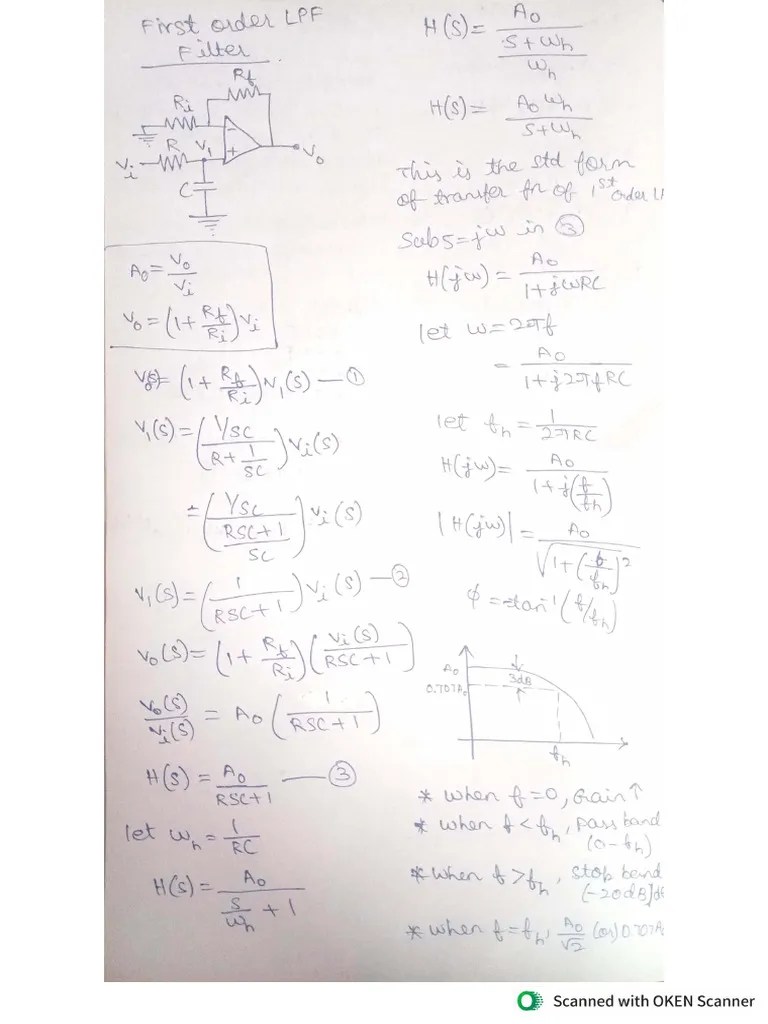 First order LPF
Filter
Rf
Ri
R
V1
Vi
Vo
C
-
+
A0 = Vo/Vi
Vo = (1 + Rf/Ri) Vi
Vo(s) = (1 + Rf/Ri) V1(s) — ①
V1(s) = ((1/SC)/(R + 1/SC)) Vi(s)
= ((1/SC)/((RSC+1)/SC)) Vi(s)
V1(s) = (1/(RSC+1)) Vi(s) — ②
Vo(s) = (1 + Rf/Ri) (Vi(s)/(RSC+1))
Vo(s)/Vi(s) = A0 (1/(RSC+1))
H(s) = A0/(RSC+1) — ③
let ωh = 1/RC
H(s) = A0/(s/ωh + 1)
H(s) = A0/((s+ωh)/ωh)
H(s) = A0ωh/(s+ωh)
This is the std form
of transfer fn of 1st order LP
Sub s=jω in ③
H(jω) = A0/(1+jωRC)
let ω = 2πf
= A0/(1+j2πfRC)
let fh = 1/2πRC
H(jω) = A0/(1+j(f/fh))
|H(jω)| = A0/√(1+(f/fh)²)
ϕ = -tan⁻¹(f/fh)
A0
3dB
0.707A0
fh
* when f=0, Gain↑
* when f<fh, pass band
(0-fh)
* when f>fh, stop band
(-20dB/de
* when f=fh, A0/√2 (or) 0.707A0
Scanned with OKEN Scanner